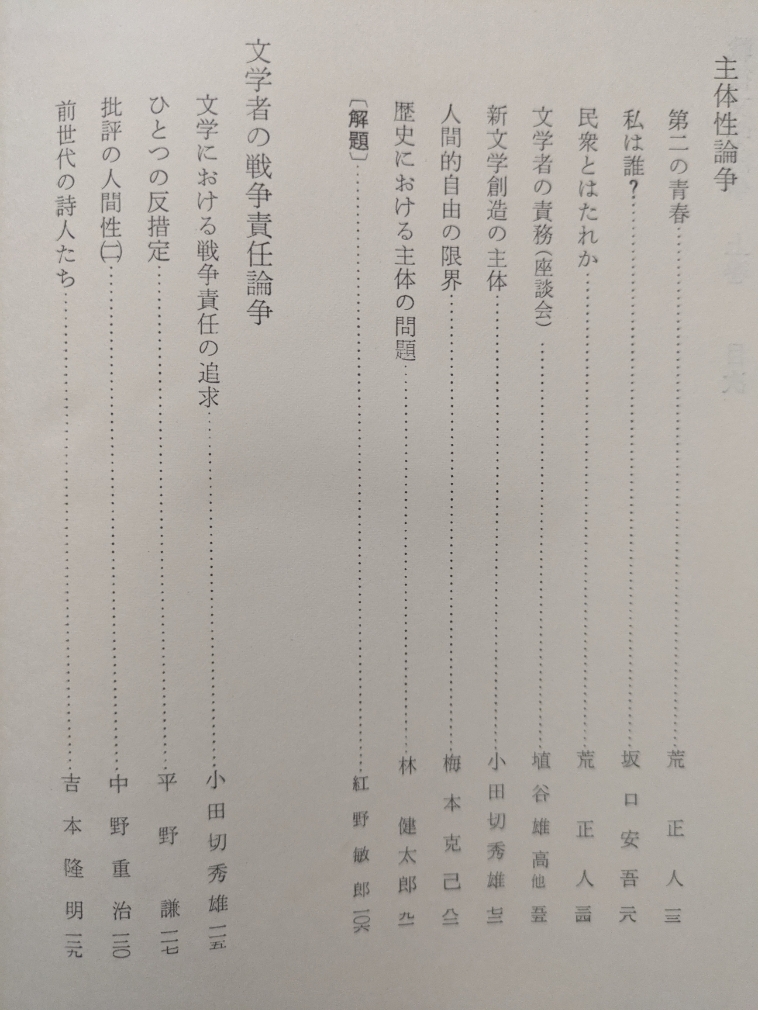 主体性論争
第二の青春……荒正人 一三
私は誰?……坂口安吾
民衆とはたれか……荒正人 三四
文学者の責務(座談会)……埴谷雄高他
新文学創造の主体……小田切秀雄 七三
人間的自由の限界……梅本克己 八二
歴史における主体の問題……林健太郎 九一
〔解題〕……紅野敏郎 一〇六
文学者の戦争責任論争
文学における戦争責任の追求……小田切秀雄 一一五
ひとつの反措定……平野謙
批評の人間性㈡……中野重治
前世代の詩人たち……吉本隆明